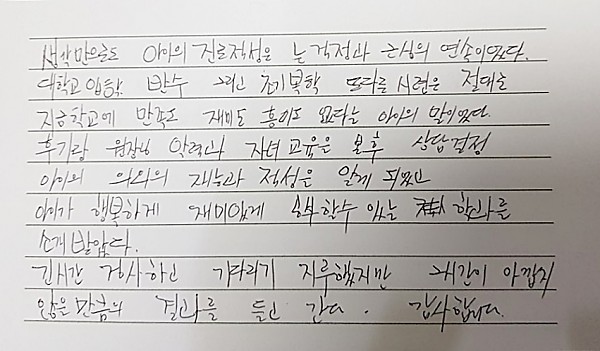 생각만으로도 아이의 진로적성은 늘 걱정과 근심의 연속이었다.
대학교 입학 반수 그리고 초기복학 또다른 시련은 절대로
지금학교에 만족도 재미도 흥미도 없다는 아이의 말이었다.
후기랑 원장님 약력과 자녀교육을 본후 상담결정
아이의 의외의 재능과 적성을 알게 되었고
아이가 행복하게 재미있게 공부할수 있는 학과를
소개받았다.
긴시간 검사하고 기다리기 지루했지만 그시간이 아깝지
않은만큼의 결과를 듣고 간다. 감사합니다.